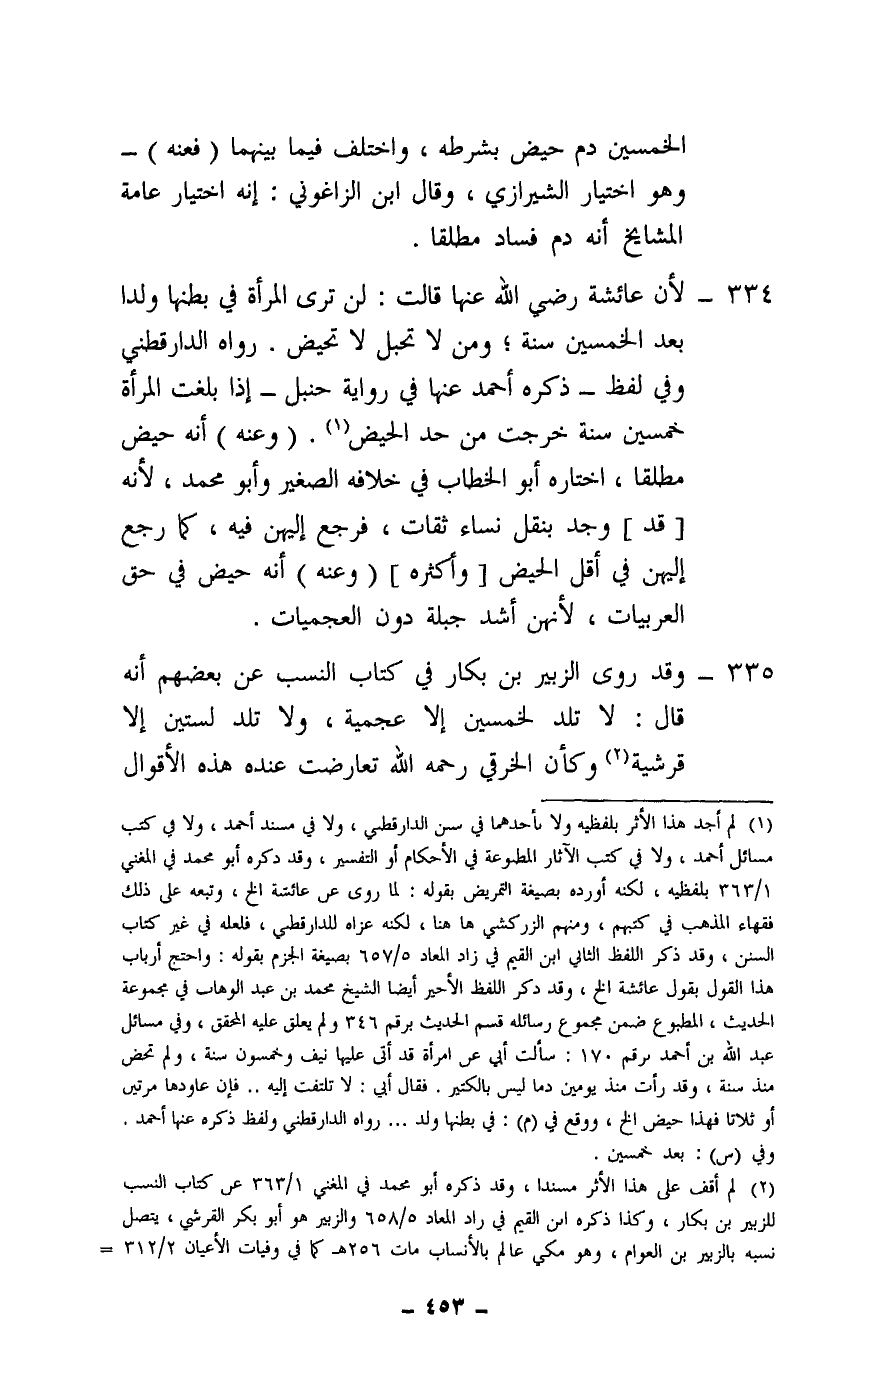 الخمسين دم حيض بشرطه ، واختلف فيما بينهما ( فعنه ) ــ
وهو اختيار الشيرازي ، وقال ابن الزاغوني : إنه اختيار عامة
المشايخ أنه دم فساد مطلقا .
٣٣٤ ــ لأن عائشة رضي الله عنها قالت : لن ترى المرأة في بطنها ولدا
بعد الخمسين سنة ؛ ومن لا تحبل لا تحيض . رواه الدارقطني
وفي لفظ ــ ذكره أحمد عنها في رواية حنبل ــ إذا بلغت المرأة
خمسين سنة خرجت من حد الحيض(١) . ( وعنه ) أنه حيض
مطلقا ، اختاره أبو الخطاب في خلافه الصغير وأبو محمد ، لأنه
[ قد ] وجد بنقل نساء ثقات ، فرجع إليهن فيه ، كما رجع
إليهن في أقل الحيض [ وأكثره ] ( وعنه ) أنه حيض في حق
العربيات ، لأنهن أشد جبلة دون العجميات .
٣٣٥ ــ وقد روى الزبير بن بكار في كتاب النسب عن بعضهم أنه
قال : لا تلد لخمسين إلا عجمية ، ولا تلد لستين إلا
قرشية(٢) وكأن الخرقي رحمه الله تعارضت عنده هذه الأقوال
(١) لم أجد هذا الأثر بلفظيه ولا بأحدهما في سنن الدارقطني ، ولا في مسند أحمد ، ولا في كتب
مسائل أحمد ، ولا في كتب الآثار المطبوعة في الأحكام أو التفسير ، وقد ذكره أبو محمد في المغني
٣٦٣/١ بلفظيه ، لكنه أورده بصيغة التمريض بقوله : لما روى عن عائشة الخ ، وتبعه على ذلك
فقهاء المذهب في كتبهم ، ومنهم الزركشي ها هنا ، لكنه عزاه للدارقطني ، فلعله في غير كتاب
السنن ، وقد ذكر اللفظ الثاني ابن القيم في زاد المعاد ٦٥٧/٥ بصيغة الجزم بقوله : واحتج أرباب
هذا القول بقول عائشة الخ ، وقد ذكر اللفظ الأخير أيضا الشيخ محمد بن عبد الوهاب في مجموعة
الحديث ، المطبوع ضمن مجموع رسائله قسم الحديث برقم ٣٤٦ ولم يعلق عليه المحقق ، وفي مسائل
عبد الله بن أحمد برقم ١٧٠ : سألت أبي عن امرأة قد أتى عليها نيف وخمسون سنة ، ولم تحض
منذ سنة ، وقد رأت منذ يومين دما ليس بالكثير . فقال أبي : لا تلتفت إليه .. فإن عاودها مرتين
أو ثلاثا فهذا حيض الخ ، ووقع في (م) : في بطنها ولد ... رواه الدارقطني ولفظ ذكره عنها أحمد .
وفي (س) : بعد خمسين .
(٢) لم أقف على هذا الأثر مسندا ، وقد ذكره أبو محمد في المغني ٣٦٣/١ عن كتاب النسب
للزبير بن بكار ، وكذا ذكره ابن القيم في زاد المعاد ٦٥٨/٥ والزبير هو أبو بكر القرشي ، يتصل
نسبه بالزبير بن العوام ، وهو مكي عالم بالأنساب مات ٢٥٦هـ كما في وفيات الأعيان ٣١٢/٢ =
ــ ٤٥٣ ــ